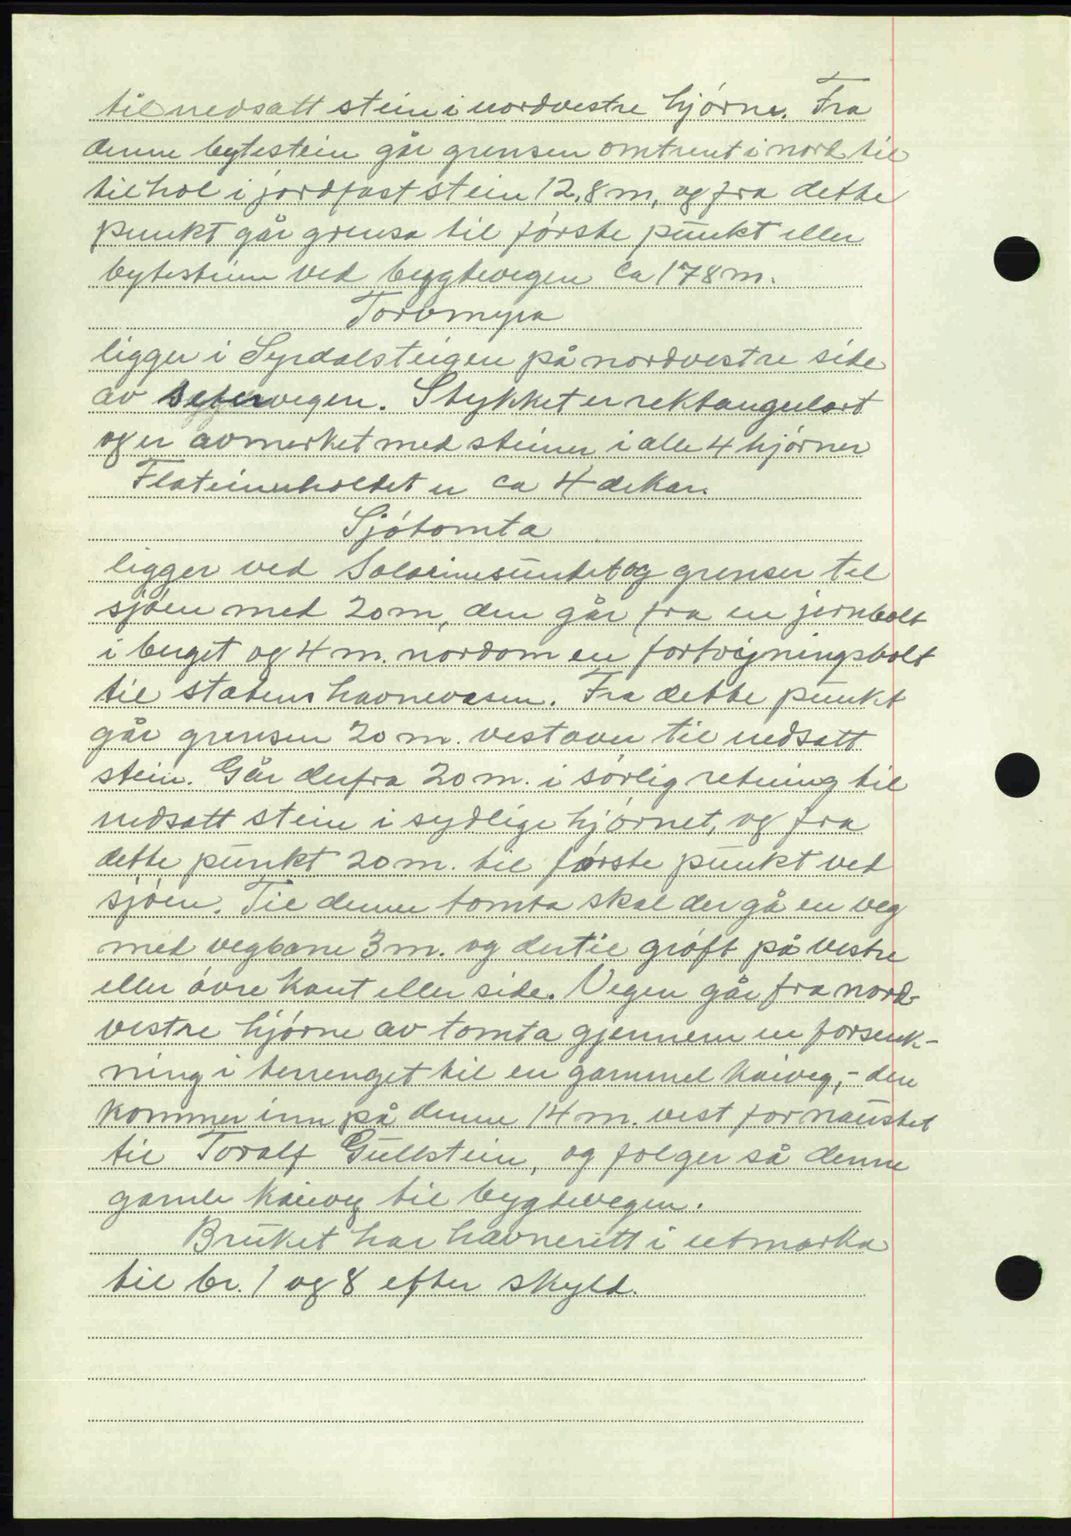 til nedsatt stein i nordvestre hjórne. Fra
denne bytestein går grensen omtrent i nord til
til hol i jordfast stein 12,8 m, og fra dette
punkt går grensa til fórste punkt eller
bytestein ved bygdevegen ca 178 m.
Torvmyra
ligger i Syrdalsteigen på nordvestre side
av setervegen. Stykket er rektangulært
og er avmerket med steiner i alle 4 hjórner
Flateinnholdet er ca 4 dekar.
Sjótomta
ligger ved og grenser til
sjóen med 20 m, den går fra en jernbolt
i berget og 4 m. nordom en fortóyningsbolt
til statens havnevesen. Fra dette punkt
går grensen 20 m. vestover til nedsatt
stein. Går derfra 20 m. i sórlig retning til
nedsatt stein i sydlige hjórnet, og fra
dette punkt 20 m. til fórste punkt ved
sjóen. Til denne tomta skal der gå en veg
med vegbane 3 m. og dertil gróft på vestre
eller óvre kant eller side. Vegen går fra nord-
vestre hjórne av tomta gjennem en forsenk-
ning i terrenget til en gammel kaiveg, - den
kommer inn på denne 14 m. vest for naustet
til Toralf Gullstein, og folger så denne
gamle kaiveg til bygdevegen.
Bruket har havnerett i utmarka
til br. 1 og 8 efter skyld.